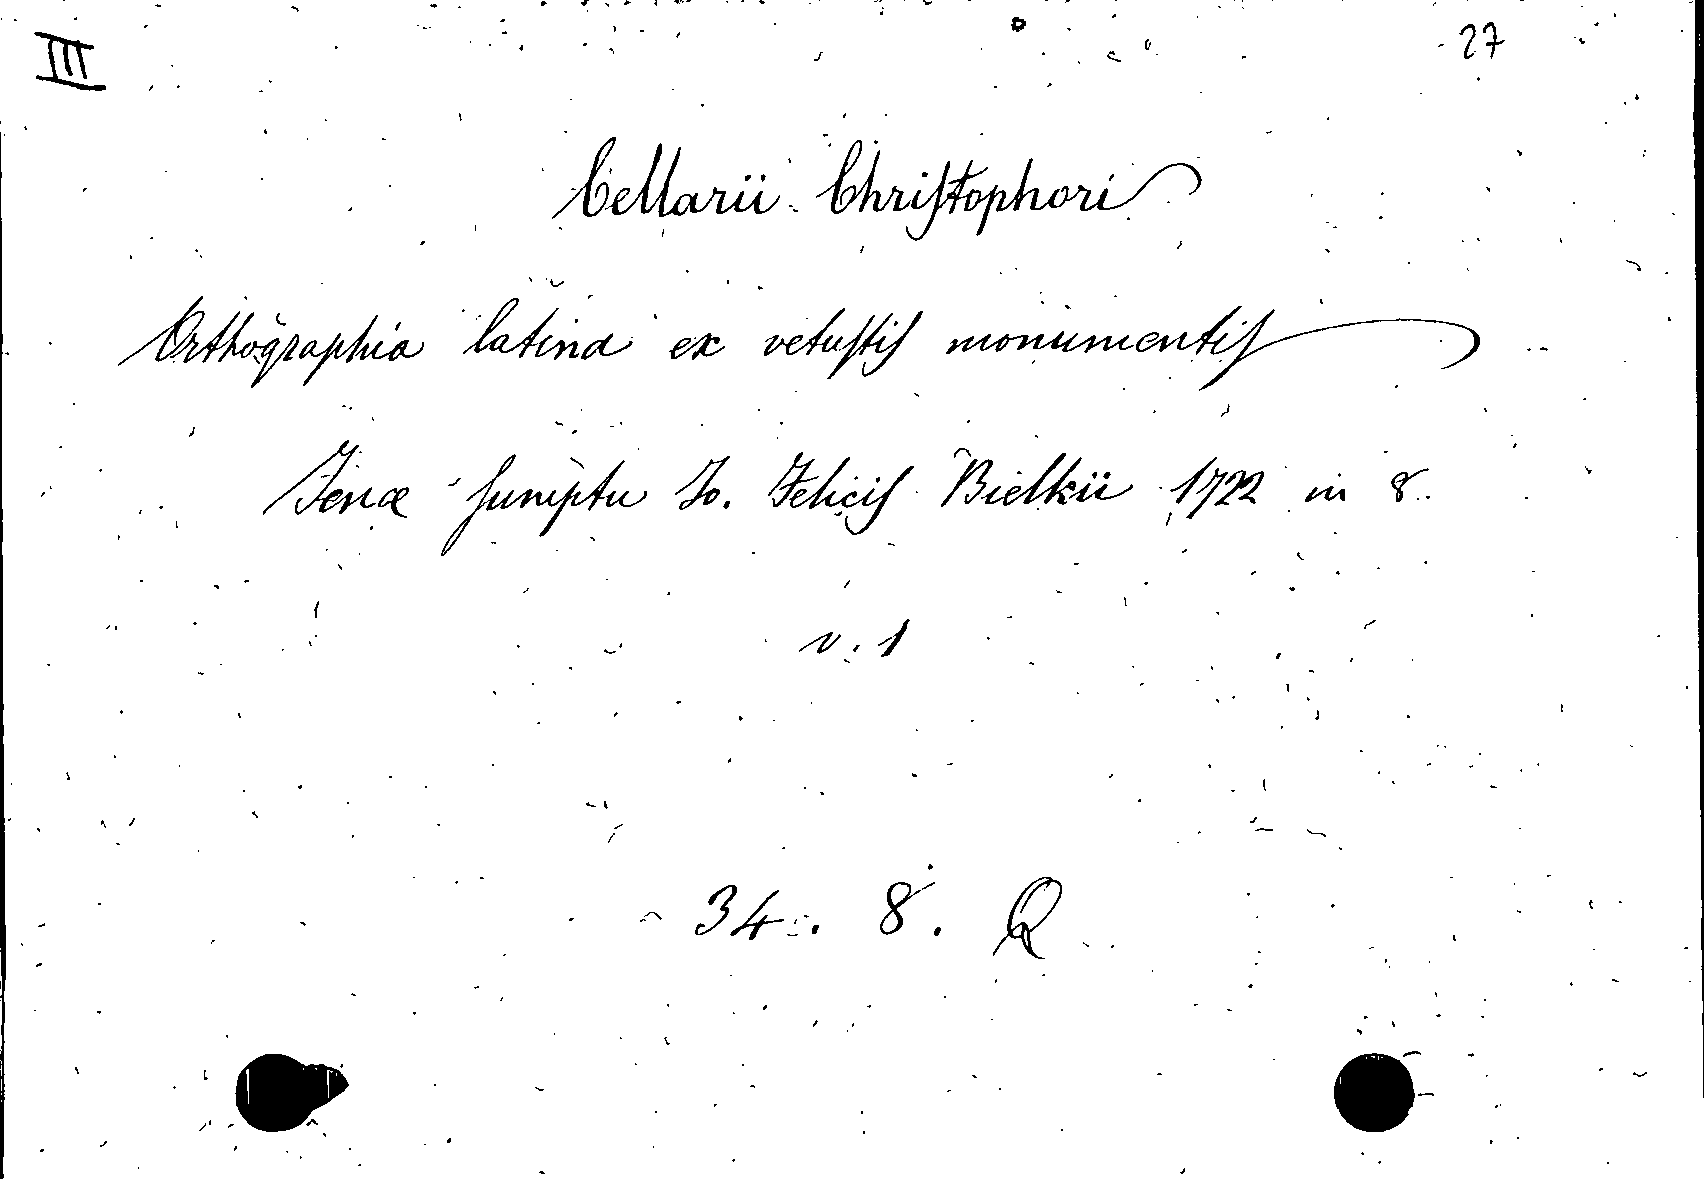 III 27
Cellarii Chriſtophori
Orthographia latina ex vetuſtiſ monumentiſ
Jenæ ſumptu Jo. Feliciſ Bielkii 1722 in 8.
v. 1
34. 8. Q